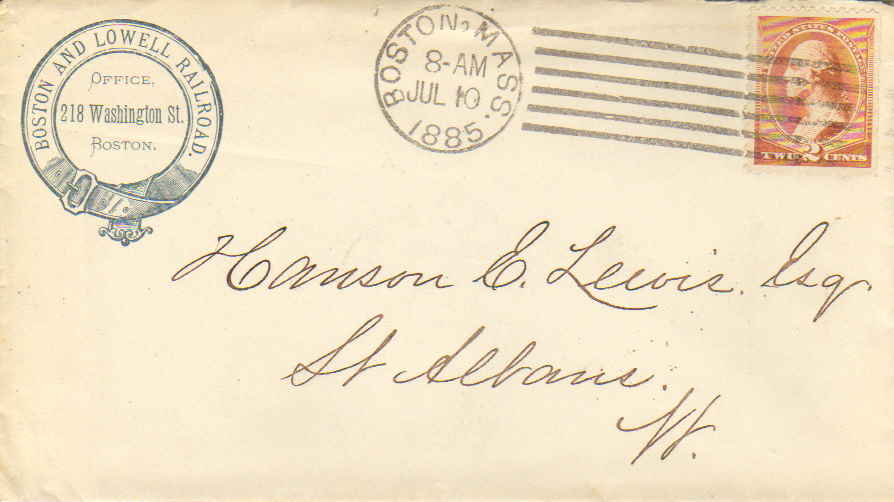 BOSTON AND LOWELL RAILROAD.
OFFICE,
218 Washington St.
BOSTON.
BOSTON, MASS.
8-AM
JUL 10
1885
UNITED STATES POSTAGE
TWO 2 CENTS
Hanson E. Lewis. Esq.
St Albans.
Vt.